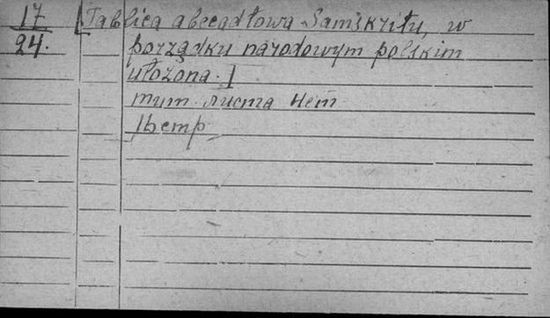 17
24.
[Tablica abecadłowa Samskritu, w
porządku narodowym polskim
ułożona.]
тит. листа нет
1 b. етр